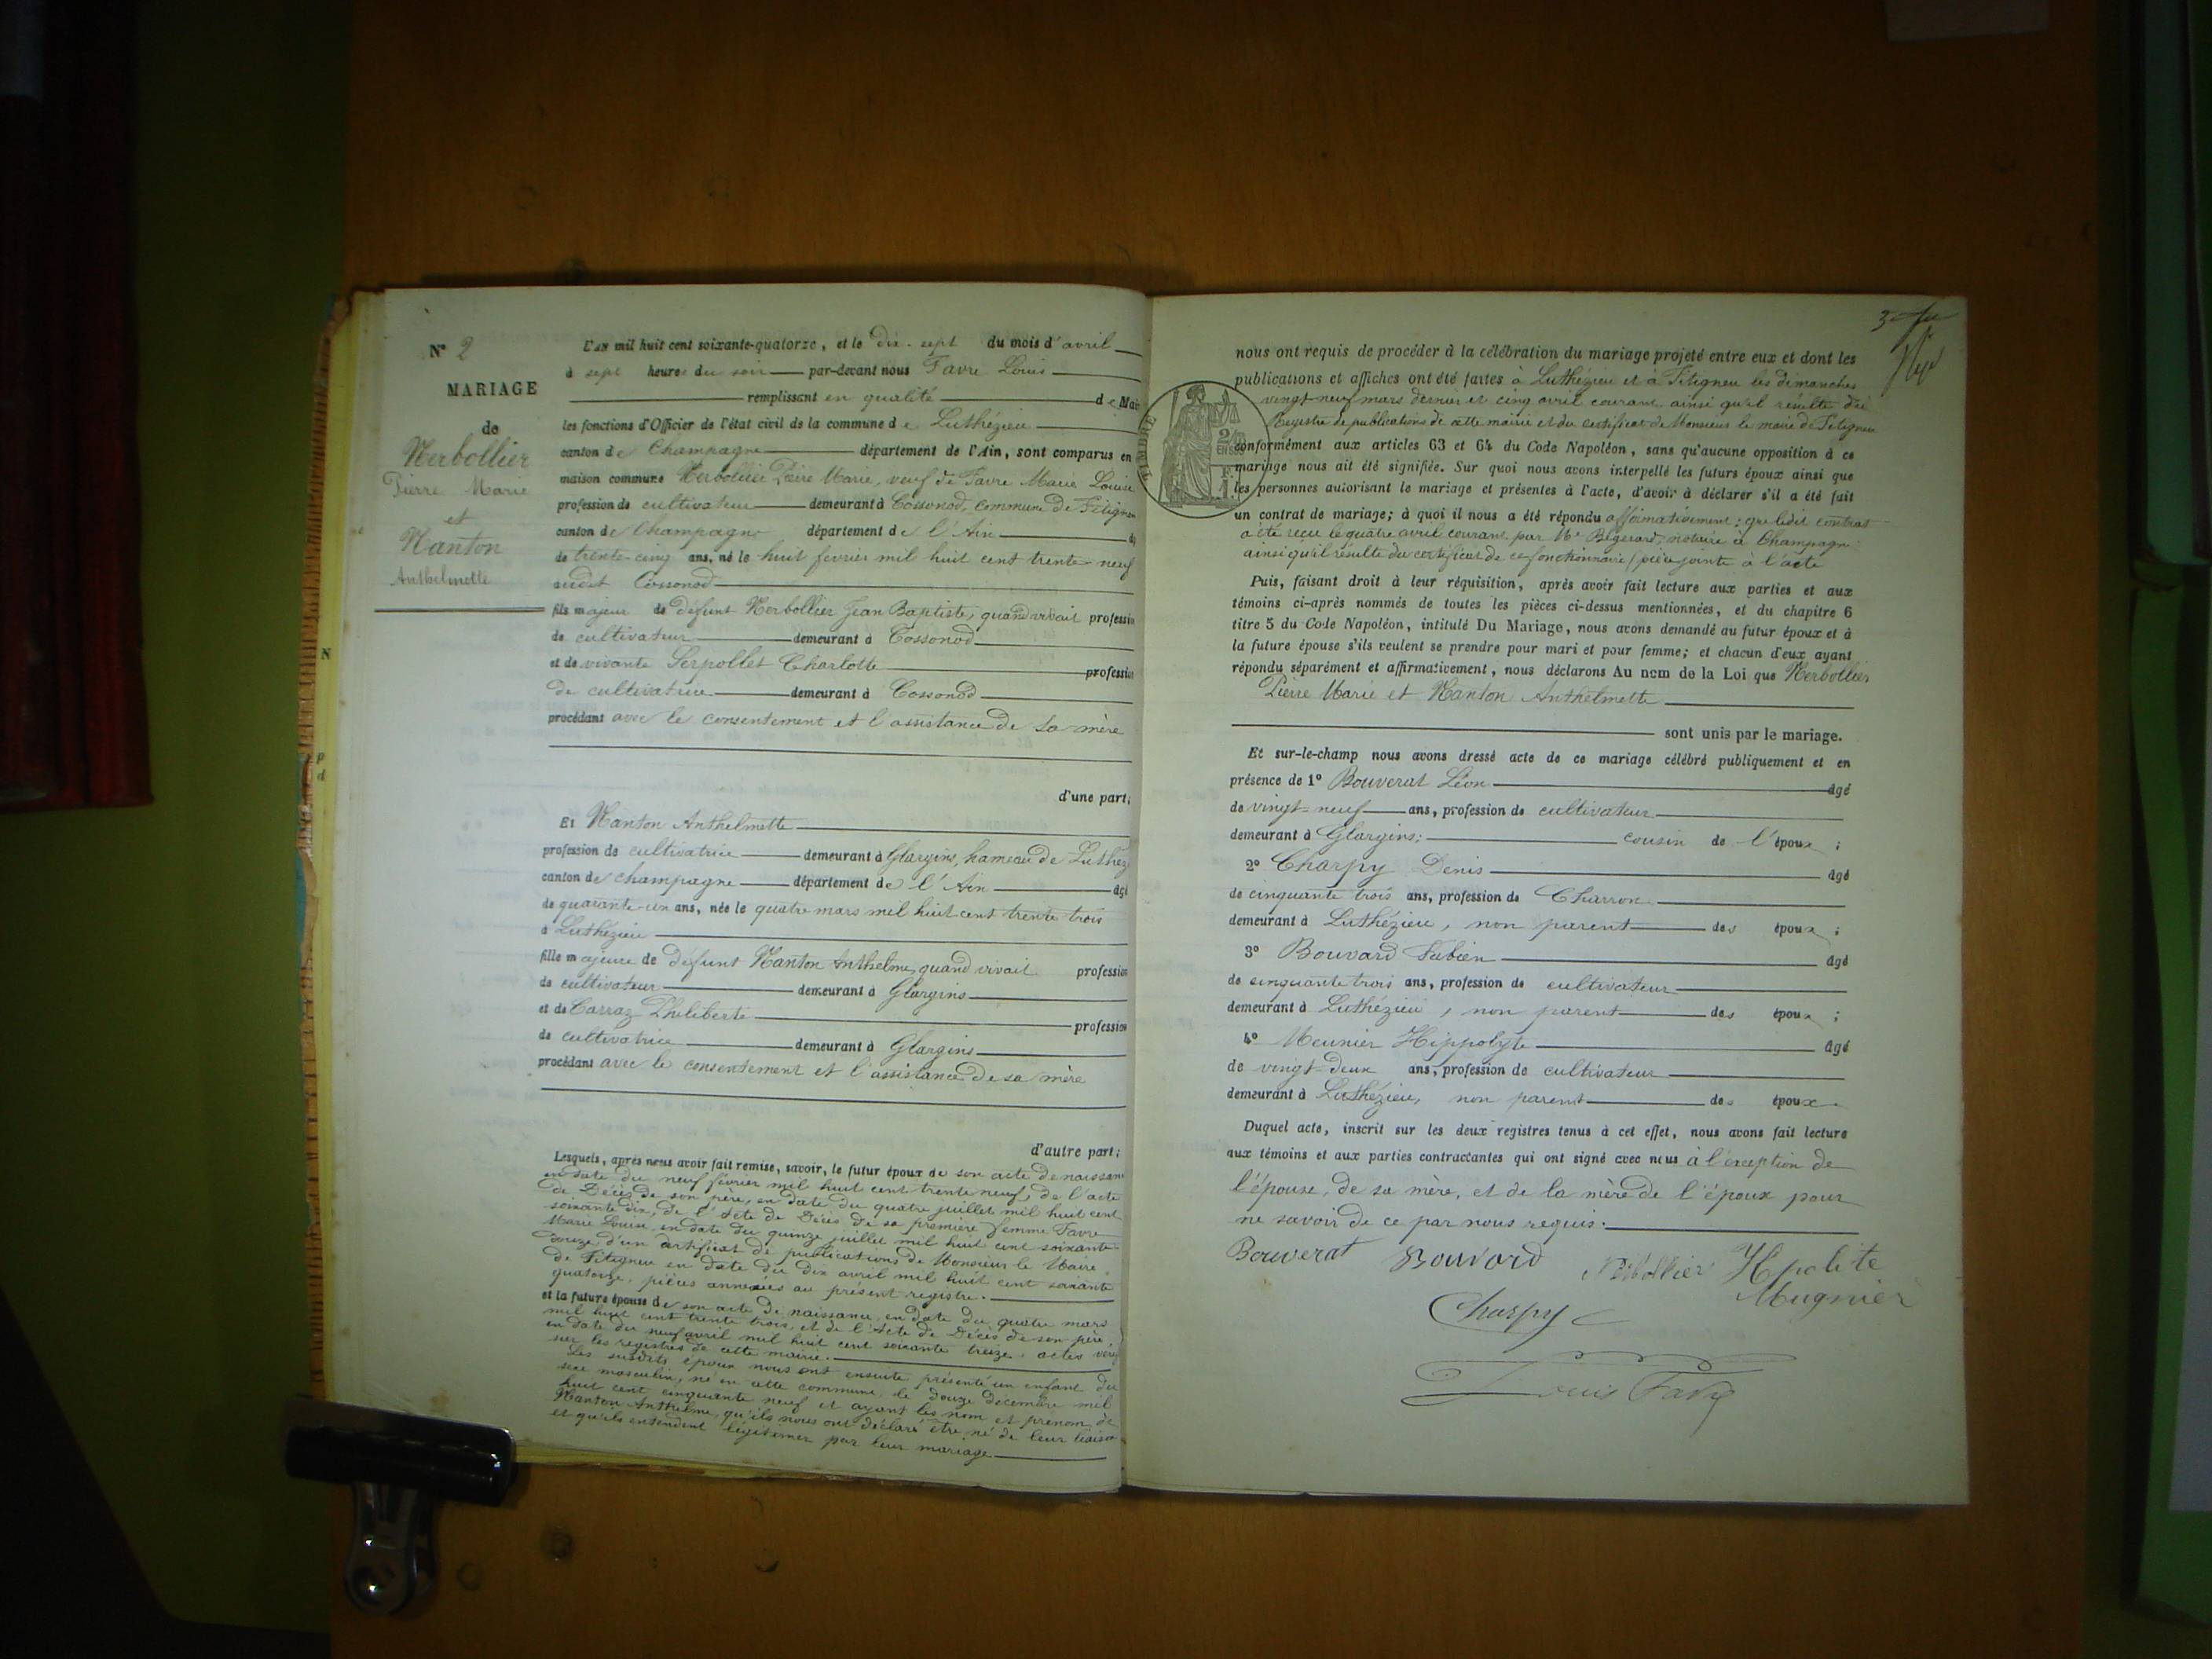 N° 2
MARIAGE
de
Nerbollier
Pierre Marie
et
Nanton
Anthelmette
L'AN mil huit cent soixante-quatorze, et le dix-sept du mois d'avril
à sept heures du soir par-devant nous Favre Louis
remplissant en qualité de Mai
les fonctions d'Officier de l'état civil de la commune de Luthézieu
canton de Champagne département de l'Ain, sont comparus en
maison commune Nerbollier Pierre Marie, veuf de Favre Marie Louise
profession de cultivateur demeurant à Cossonod, commune de Fitignieu
canton de Champagne département de l'Ain
de trente-cinq ans, né le huit février mil huit cent trente-neuf
audit Cossonod
fils majeur de défunt Nerbollier Jean Baptiste, quand vivait profession
de cultivateur demeurant à Cossonod
et de vivante Serpollet Charlotte profession
de cultivatrice demeurant à Cossonod
procédant avec le consentement et l'assistance de sa mère
d'une part;
Et Nanton Anthelmette
profession de cultivatrice demeurant à Glargins, hameau de Luthéz
canton de Champagne département de l'Ain âgé
de quarante-un ans, née le quatre mars mil huit cent trente trois
à Luthézieu
fille majeure de défunt Nanton Anthelme, quand vivait profession
de cultivateur demeurant à Glargins
et de Carraz Philiberte profession
de cultivatrice demeurant à Glargins
procédant avec le consentement et l'assistance de sa mère
d'autre part;
Lesquels, après nous avoir fait remise, savoir, le futur époux de son acte de naissanc
en date du neuf février mil huit cent trente neuf, de l'acte
de Décès de son père, en date du quatre juillet mil huit cent
soixante dix, de l'Acte de Décès de sa première femme Favre
Marie Louise, en date du quinze juillet mil huit cent soixante
douze d'un certificat de publications de Monsieur le Maire
de Fitignieu en date du dix avril mil huit cent soixante
quatorze, pièces annexées au présent registre.
et la future épouse de son acte de naissance, en date du quatre mars
mil huit cent trente trois, et de l'Acte de Décès de son père,
en date du neuf avril mil huit cent soixante treize, actes vérif
sur les registres de cette mairie.
Les susdits époux nous ont ensuite présenté un enfant du
sexe masculin, né en cette commune, le douze décembre mil
huit cent cinquante neuf et ayant les nom et prénom de
Nanton Anthelme, qu'ils nous ont déclaré être né de leur liaison
et qu'ils entendent légitimer par leur mariage
3
TIMBRE
nous ont requis de procéder à la célébration du mariage projeté entre eux et dont les
publications et affiches ont été faites à Luthézieu et à Fitignieu les dimanches
vingt-neuf mars dernier et cinq avril courant ainsi qu'il résulte du
Registre de publications de cette mairie et du certificat de Monsieur le maire de Fitignieu
conformément aux articles 63 et 64 du Code Napoléon, sans qu'aucune opposition à ce
mariage nous ait été signifiée. Sur quoi nous avons interpellé les futurs époux ainsi que
les personnes autorisant le mariage et présentes à l'acte, d'avoir à déclarer s'il a été fait
un contrat de mariage; à quoi il nous a été répondu affirmativement: que ledit contrat
a été reçu le quatre avril courant par Me Bégerard, notaire à Champagne
ainsi qu'il résulte du certificat de ce fonctionnaire (pièce jointe à l'acte
Puis, faisant droit à leur réquisition, après avoir fait lecture aux parties et aux
témoins ci-après nommés de toutes les pièces ci-dessus mentionnées, et du chapitre 6
titre 5 du Code Napoléon, intitulé Du Mariage, nous avons demandé au futur époux et à
la future épouse s'ils veulent se prendre pour mari et pour femme; et chacun d'eux ayant
répondu séparément et affirmativement, nous déclarons Au nom de la Loi que Nerbollier
Pierre Marie et Nanton Anthelmette
sont unis par le mariage.
Et sur-le-champ nous avons dressé acte de ce mariage célébré publiquement et en
présence de 1° Bouverat Léon âgé
de vingt-neuf ans, profession de cultivateur
demeurant à Glargins; cousin de l'époux;
2° Charpy Denis âgé
de cinquante trois ans, profession de Charron
demeurant à Luthézieu, non parent des époux;
3° Bouvard Fabien âgé
de cinquante trois ans, profession de cultivateur
demeurant à Luthézieu, non parent des époux;
4° Meunier Hippolyte âgé
de vingt-deux ans, profession de cultivateur
demeurant à Luthézieu, non parent des époux
Duquel acte, inscrit sur les deux registres tenus à cet effet, nous avons fait lecture
aux témoins et aux parties contractantes qui ont signé avec nous à l'exception de
l'épouse, de sa mère, et de la mère de l'époux pour
ne savoir de ce par nous requis.
Bouverat Bouvard Nerbollier Hypolite
Mugnier
Charpy
Louis Favre